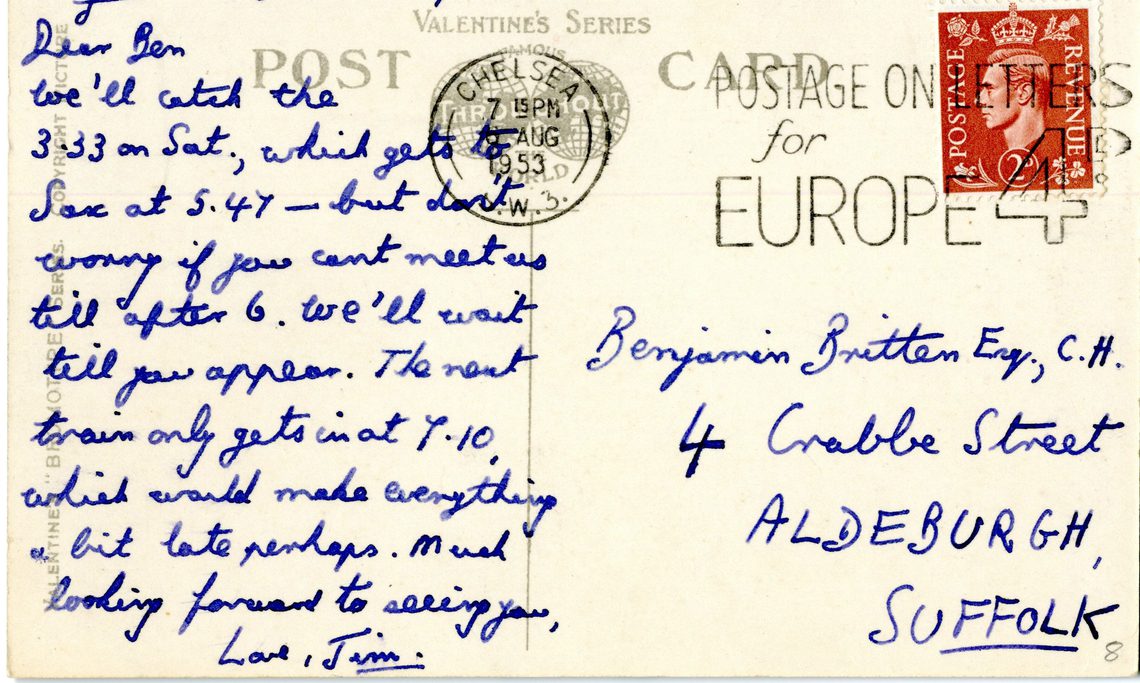 VALENTINE'S SERIES
POST CARD
FAMOUS
THROUGHOUT
THE
WORLD
VALENTINE'S "
SERIES.
COPYRIGHT PICTURE
Dear Ben
We'll catch the
3.33 on Sat., which gets to
Sax at 5.47 — but don't
worry if you cant meet us
till after 6. We'll wait
till you appear. The next
train only gets in at 7.10,
which would make everything
a bit late perhaps. Much
looking forward to seeing you,
Love, Jim.
CHELSEA
7 15 PM
AUG
1953
S.W.3.
POSTAGE ON LETTERS
for
EUROPE 4D
POSTAGE
REVENUE
2D
Benjamin Britten Esq., C.H.
4 Crabbe Street
ALDEBURGH,
SUFFOLK
8